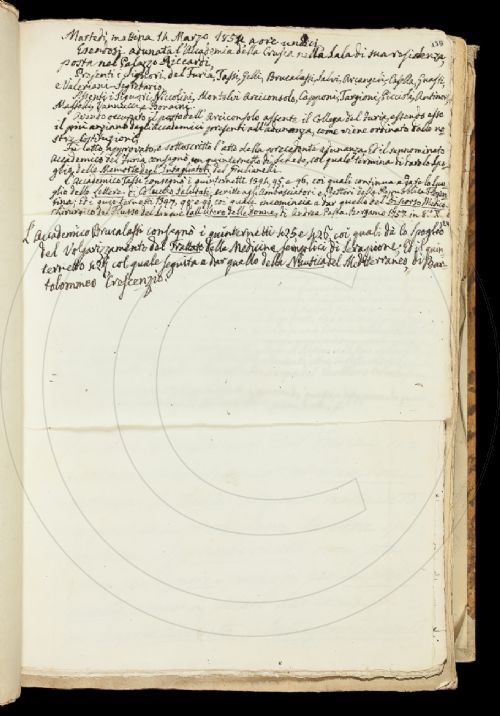 Martedì, mattina 14 Marzo 1854 a ore undici
Essendosi adunata l'Accademia della Crusca nella Sala di sua residenza
posta nel Palazzo Riccardi,
Presenti i Signori, del Furia, Tassi, Gelli, Brucalassi, Salvi, Arcangeli, Casella, Guasti,
e Valeriani Segretario,
Assenti i Signori Niccolini, Montalvi Arciconsolo, Capponi, Targioni, Puccioti, Antinori,
Maffei, Vannucci e Bonaini.
Avendo occupato il posto dell'Arciconsolo assente il Collega del Furia, essendo esso
il più anziano degli Accademici presenti all'adunanza, come viene ordinato dalle no
stre Costituzioni,
Fu letto, approvato, e sottoscritto l'atto della precedente adunanza. Ed il soprannominato
Accademico del Furia consegnò un quinternetto di Senedo, col quale termina di dar lo Spo
glio delle Memorie degl' del Giulianelli.
L'Accademico Tassi consegnò i quinternetti 1894, 95 e 96, coi quali continua a dar lo Spo
glio delle Lettere di Coluccio Salutati, scritte agli Ambasciatori e Rettori della Repubblica Fioren
tina; Ed i quinternetti 1897, 98 e 99, coi quali incomincia a dar quello del Discorso Medico
chirurgico del flusso di sangue dall'utero delle donne, di Andrea Pasta. Bergamo 1757. in 8.°
L'Accademico Brucalassi consegnò i quinternetti 425 e 426, coi quali dà lo Spoglio
del Volgarizzamento del Trattato delle Medicine semplici di Serapione; Ed il quin
ternetto 427 col quale seguita a dar quello della Nautica del Mediterraneo, di Bar
tolommeo Crescenzio.